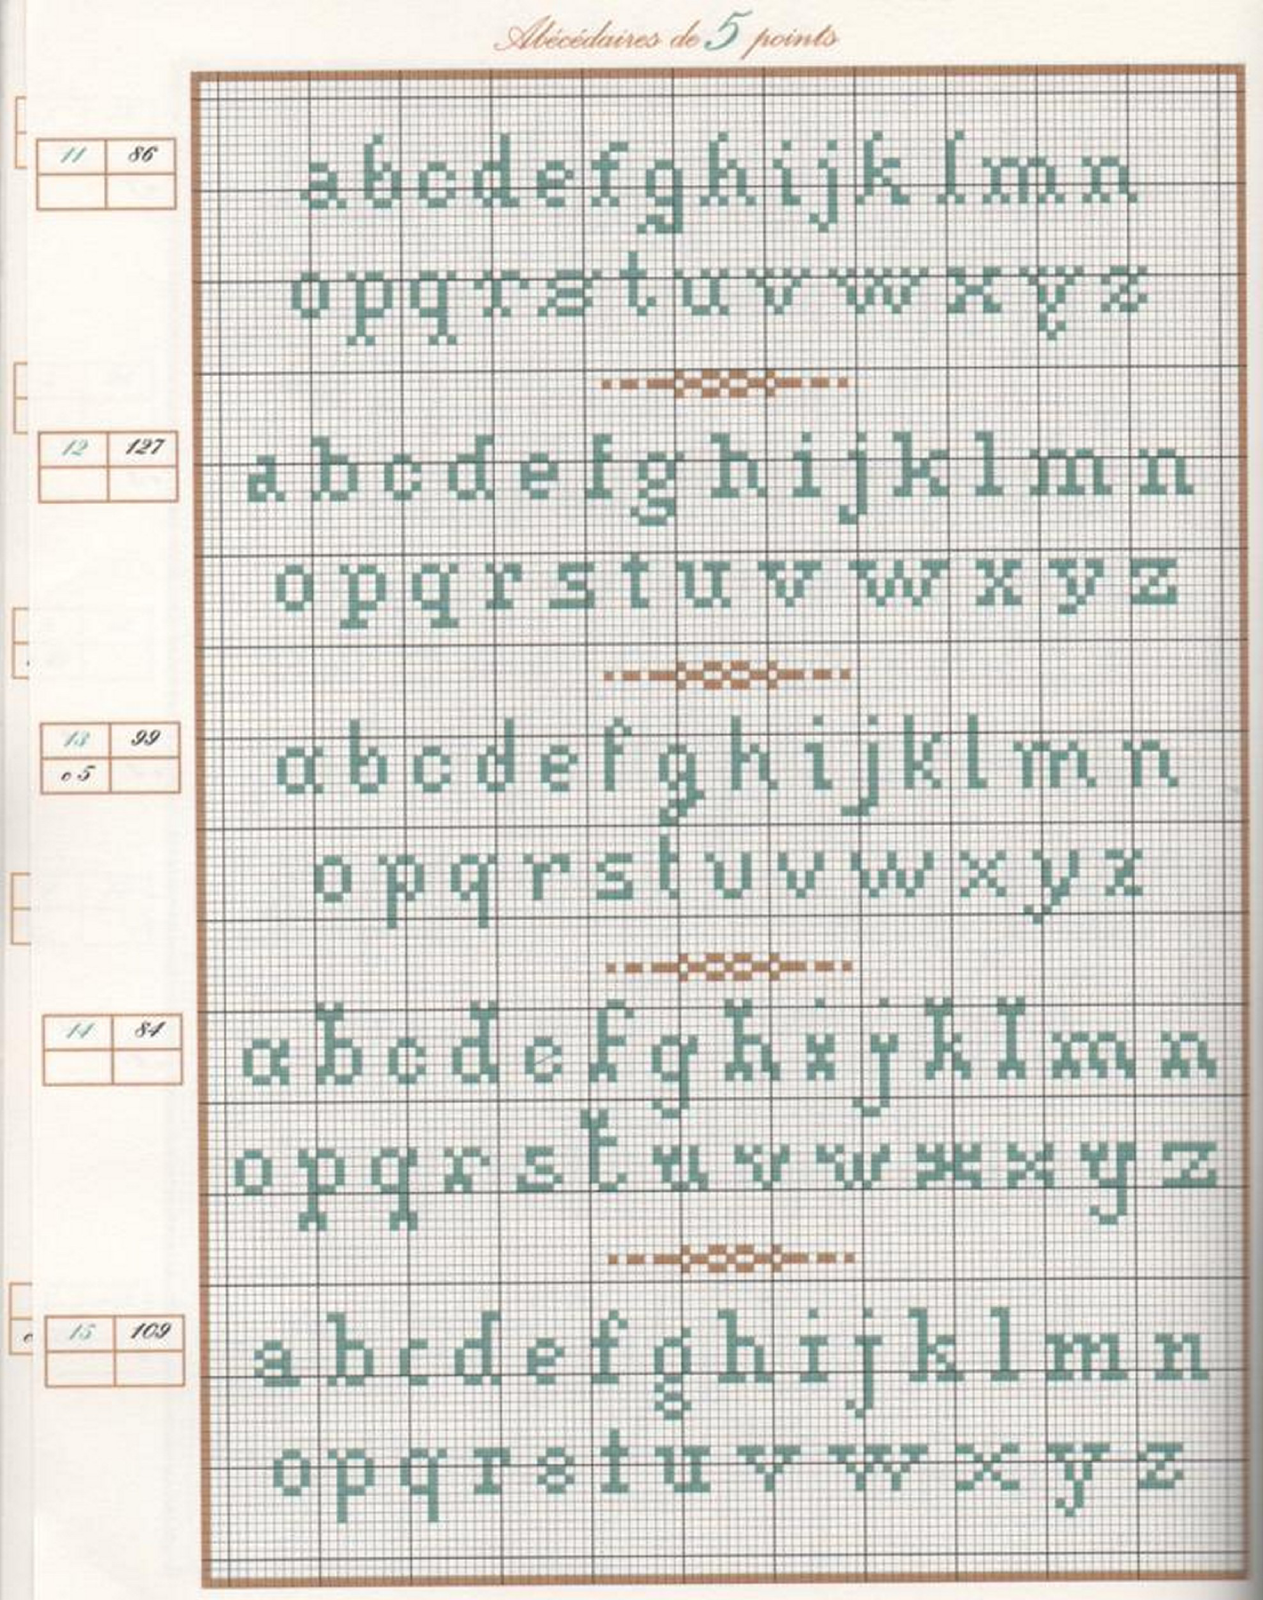 Abécédaires de 5 points
11 86
abcdefghijklmn
opqrstuvwxyz
12 127
abcdefghijklmn
opqrstuvwxyz
13 99
c 5
abcdefghijklmn
opqrstuvwxyz
14 84
abcdefghijklmn
opqrstuvwxxyz
15 109
abcdefghijklmn
opqrstuvwxyz